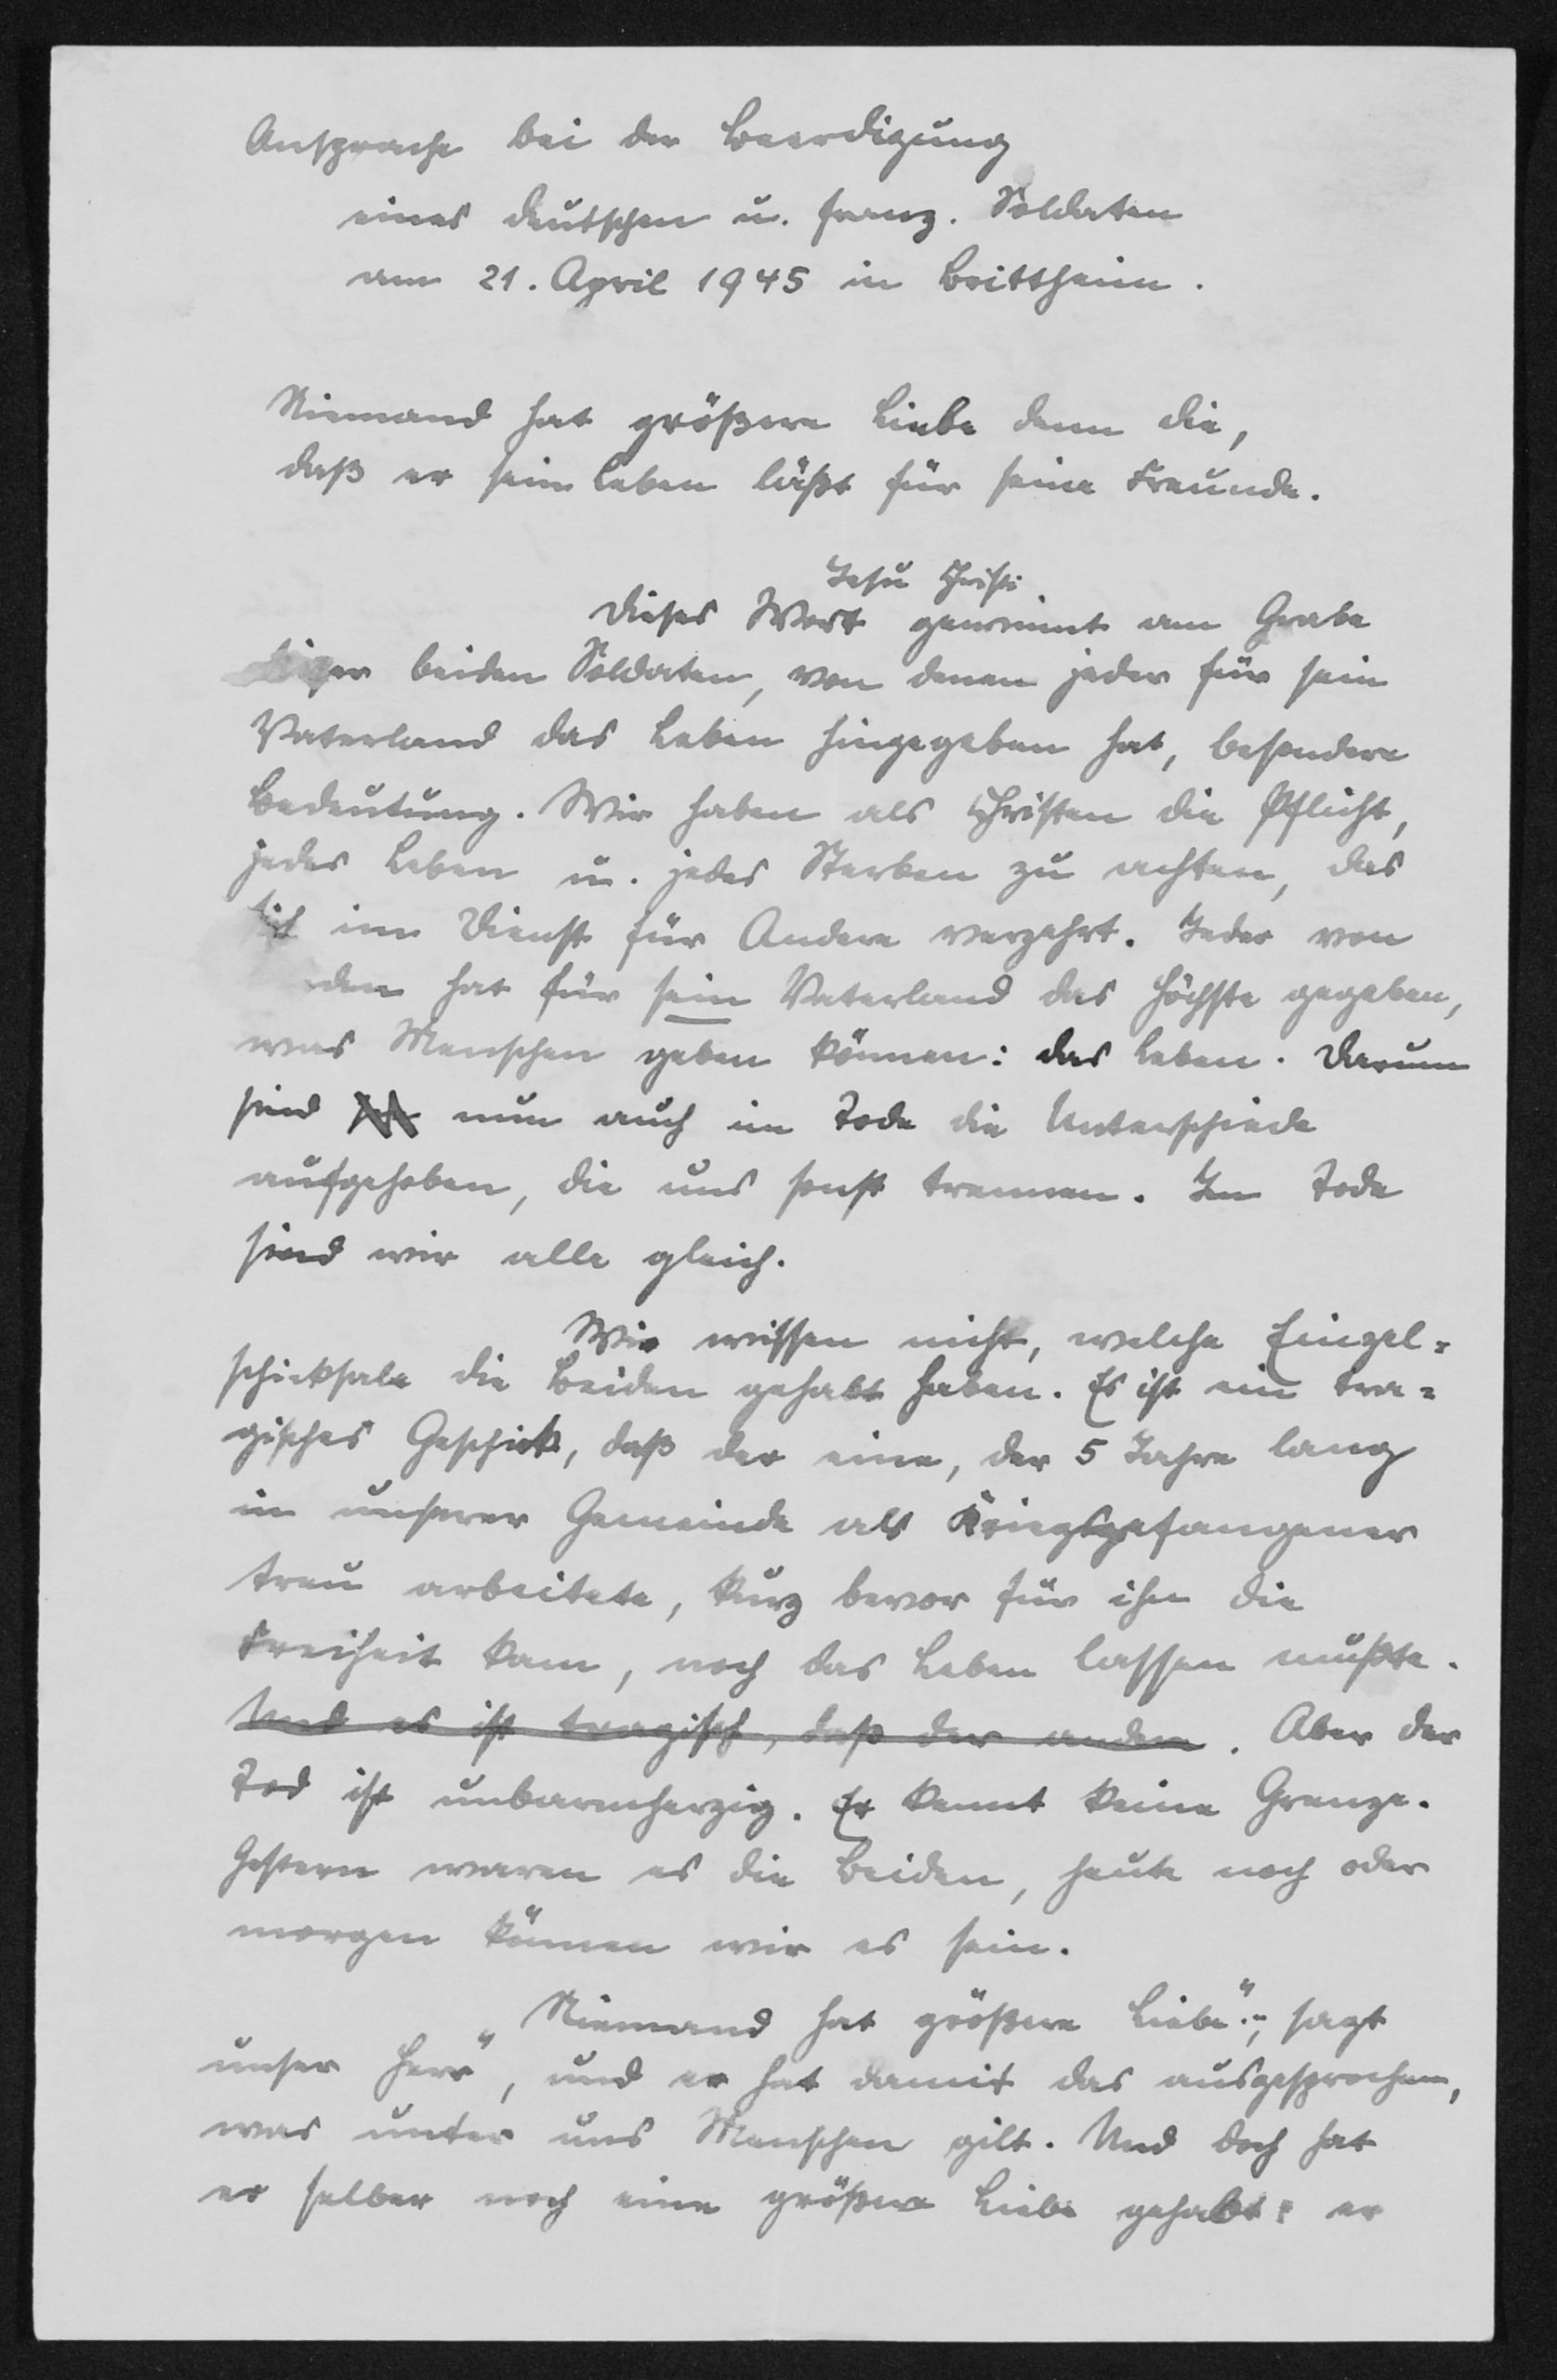 Ansprache bei der Beerdigung
eines deutschen u. franz. Soldaten
am 21. April 1945 in Brittheim.
Niemand hat größere Liebe denn die,
daß er sein Leben läßt für seine Freunde.
Jesu Christi
Dieses Wort gewinnt am Grabe
dieser beiden Soldaten, von denen jeder für sein
Vaterland das Leben hingegeben hat, besondere
Bedeutung. Wir haben als Christen die Pflicht,
jedes Leben u. jedes Sterben zu achten, das
sich im Dienst für Andere verzehrt. Jeder von
hat für sein Vaterland das Höchste gegeben,
was Menschen geben können: das Leben. Darum
sind nun auch im Tode die Unterschiede
aufgehoben, die uns sonst trennen. Im Tode
sind wir alle gleich.
Wir wissen nicht, welche Einzel=
schicksale die Beiden gehabt haben. Es ist ein tra=
gisches Geschick, daß der eine, der 5 Jahre lang
in unserer Gemeinde als Kriegsgefangener
treu arbeitete, kurz bevor für ihn die
Freiheit kam, noch das Leben lassen mußte.
Und es ist tragisch, daß der andere. Aber der
Tod ist unbarmherzig. Er kennt keine Grenze.
Gestern waren es die Beiden, heute noch oder
morgen können wir es sein.
„Niemand hat größere Liebe..", sagt
unser Herr", und er hat damit das ausgesprochen,
was unter uns Menschen gilt. Und doch hat
er selber noch eine größere Liebe gehabt: er